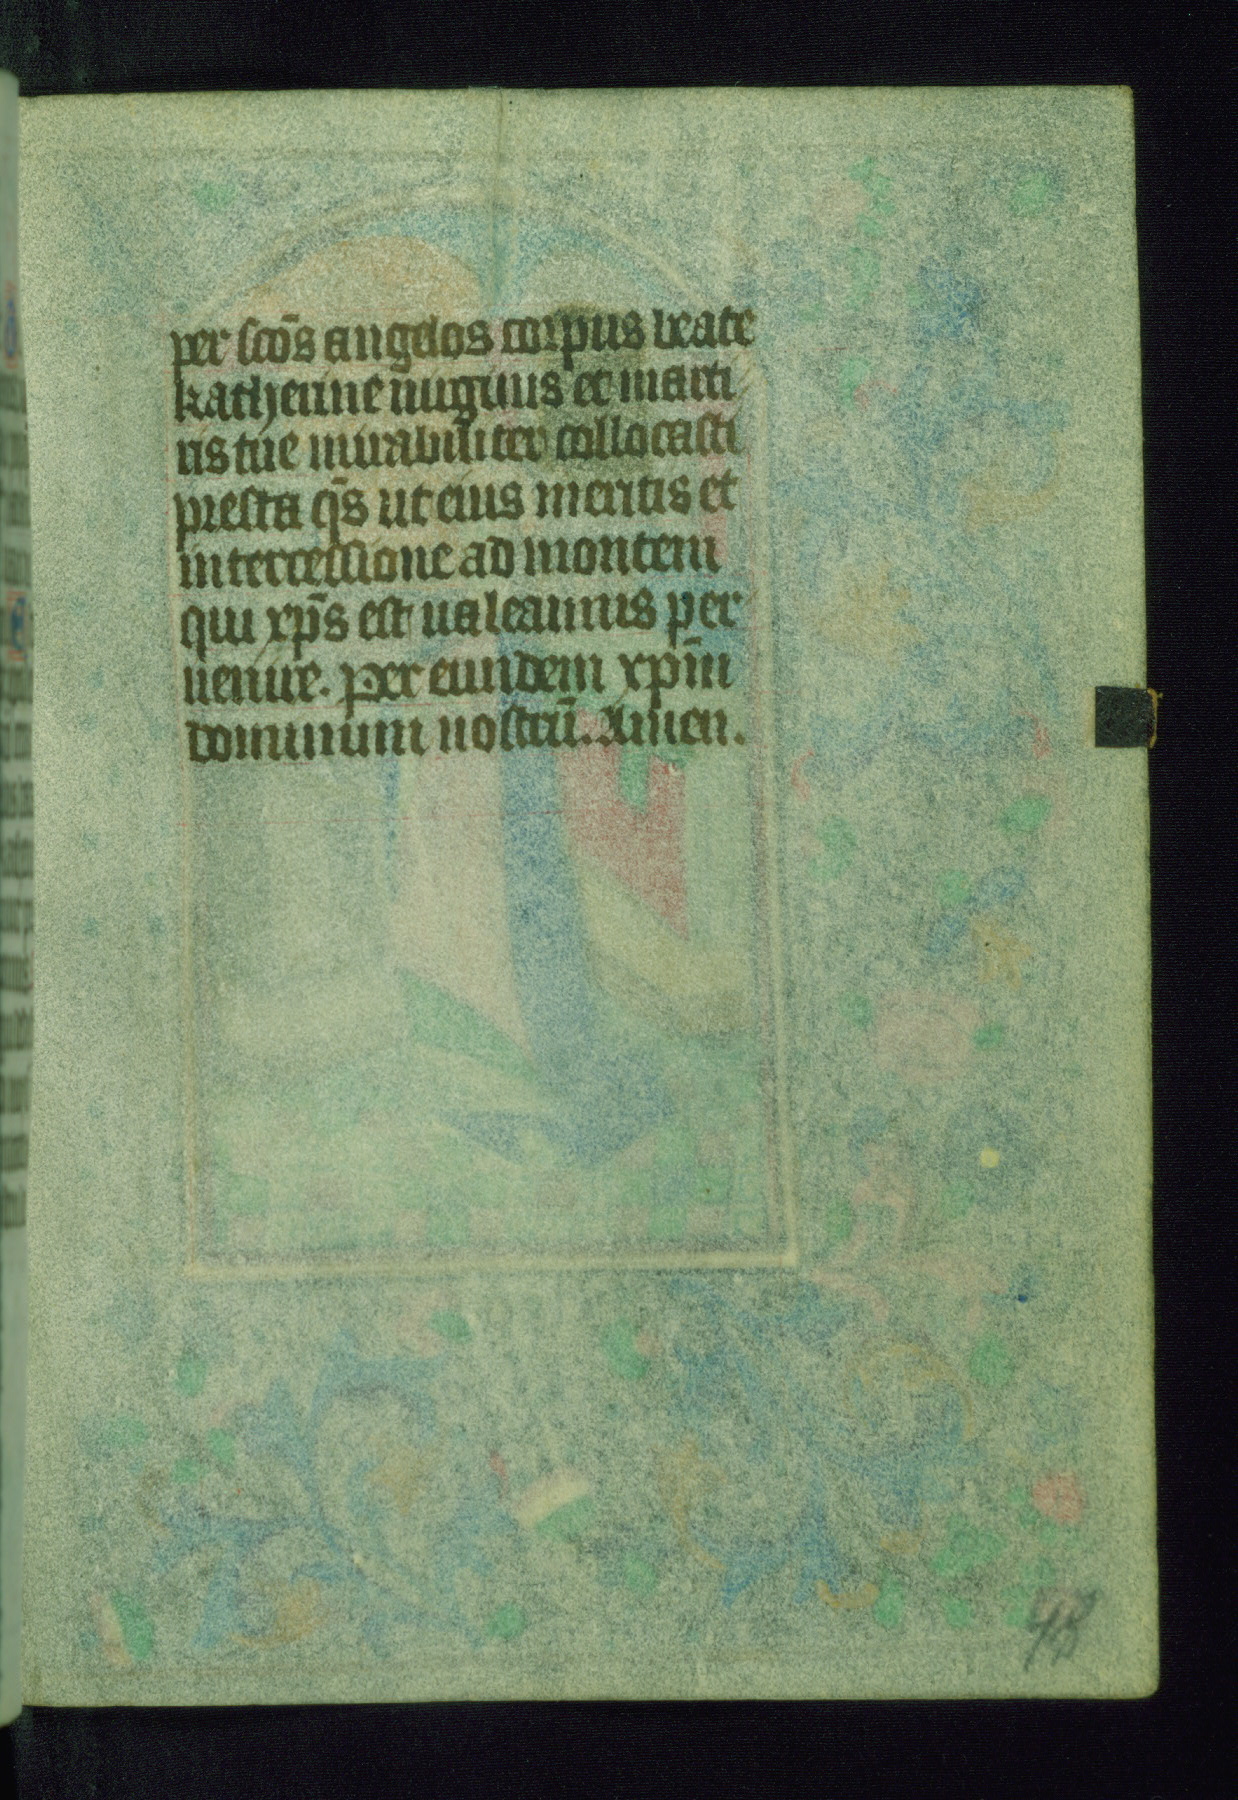 per scōs angelos corpus beate
katherine uirginis et marti
ris tue mirabiliter collocasti
presta q̄s ut eius meritis et
intercessione ad montem
qui xp̄s est ualeamus per
uenire. Per eundem xp̄m
dominum nostrū. Amen.
48